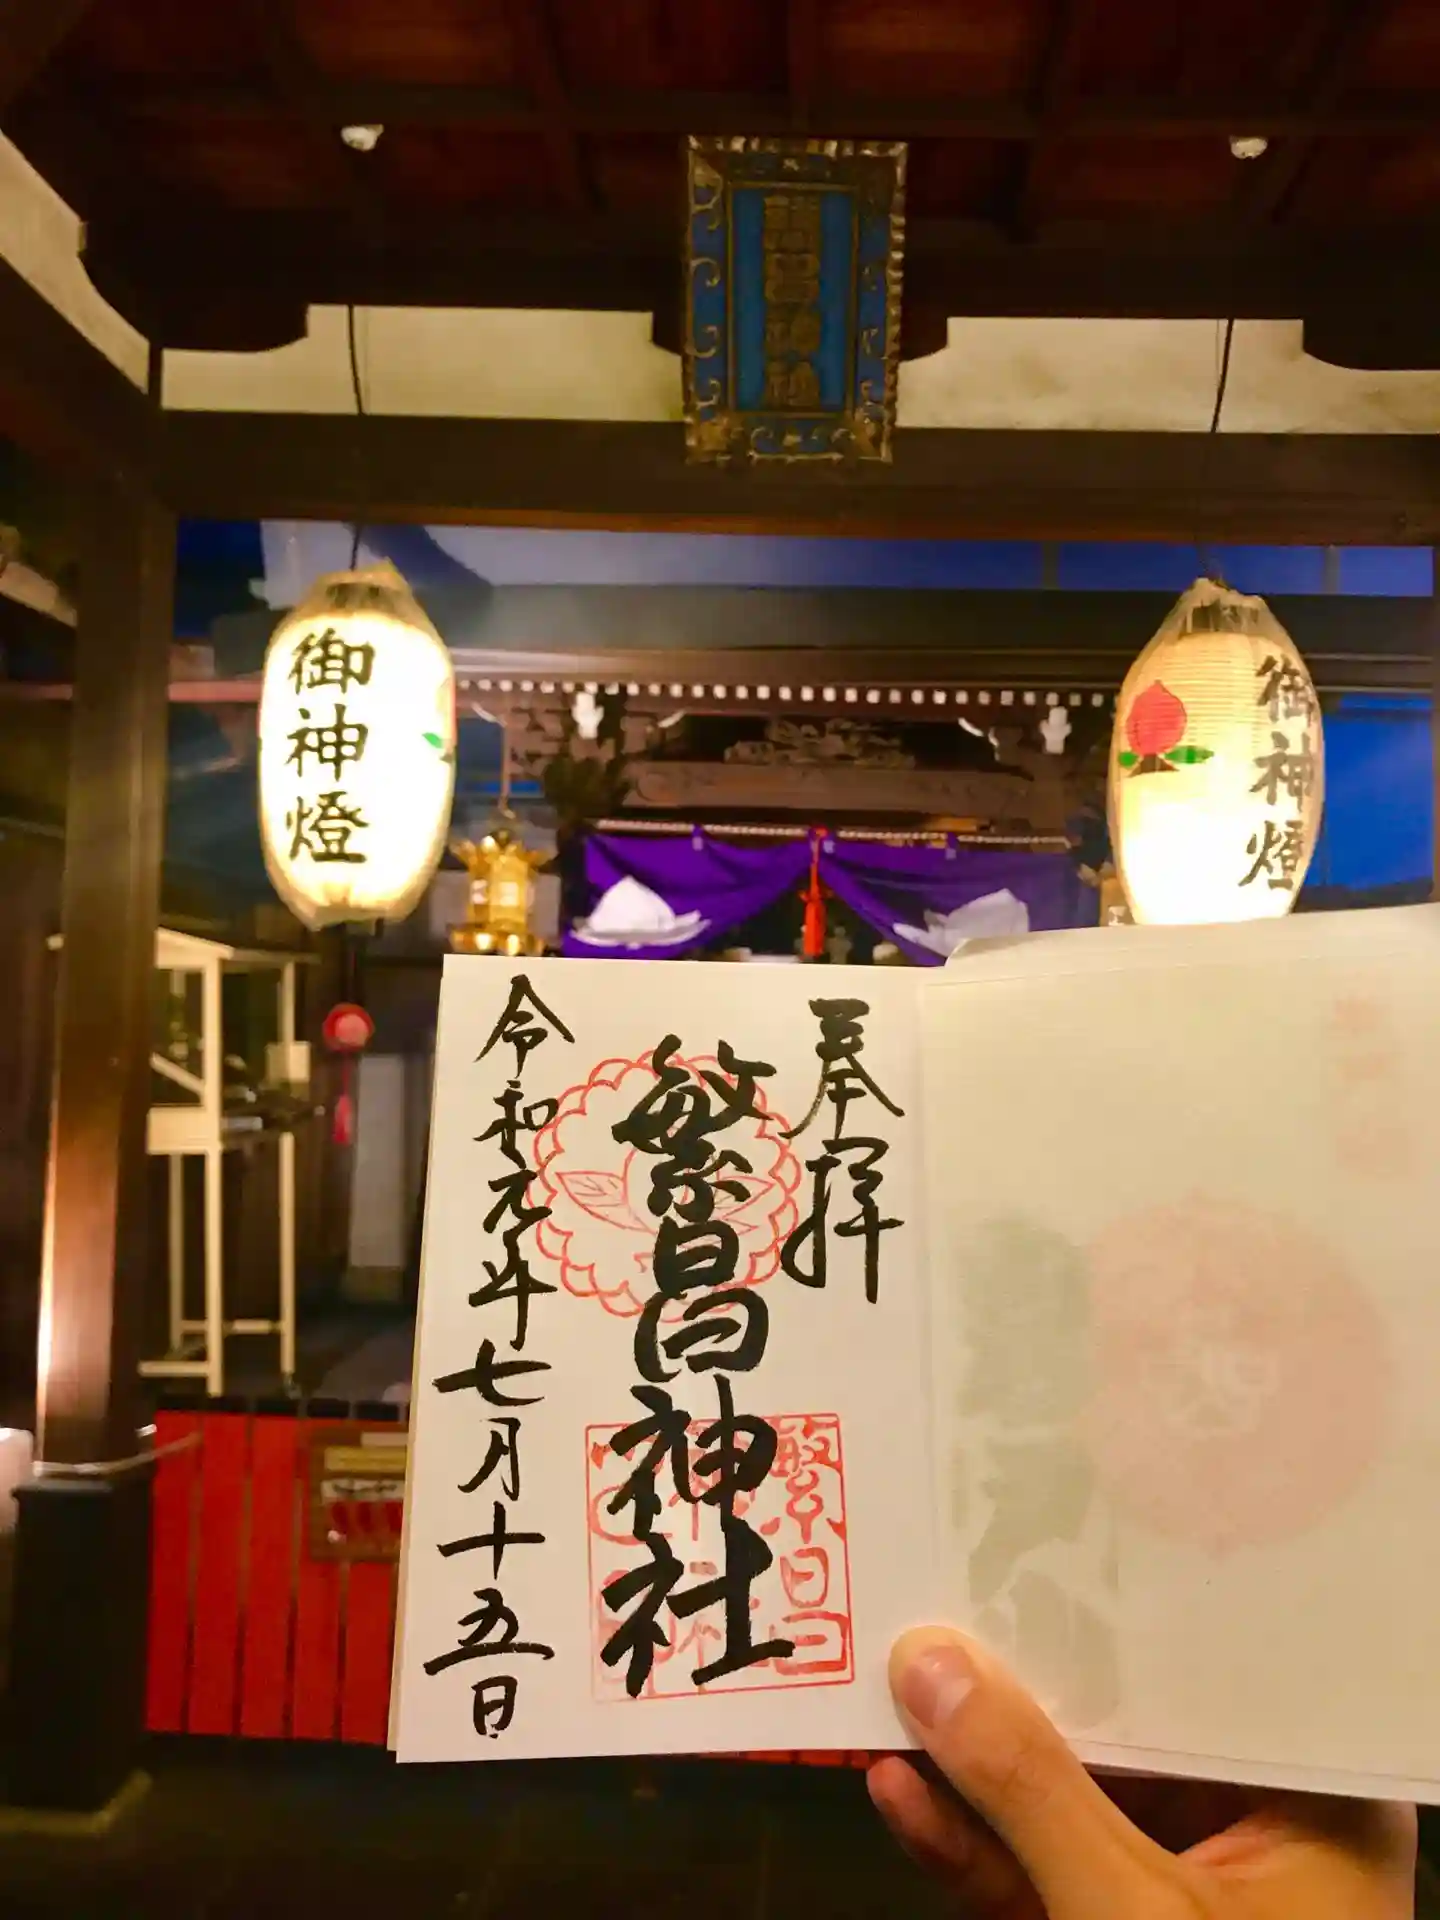 繁昌神社
御神燈
御神燈
奉拝
繁昌神社
繁昌
令和元年七月十五日